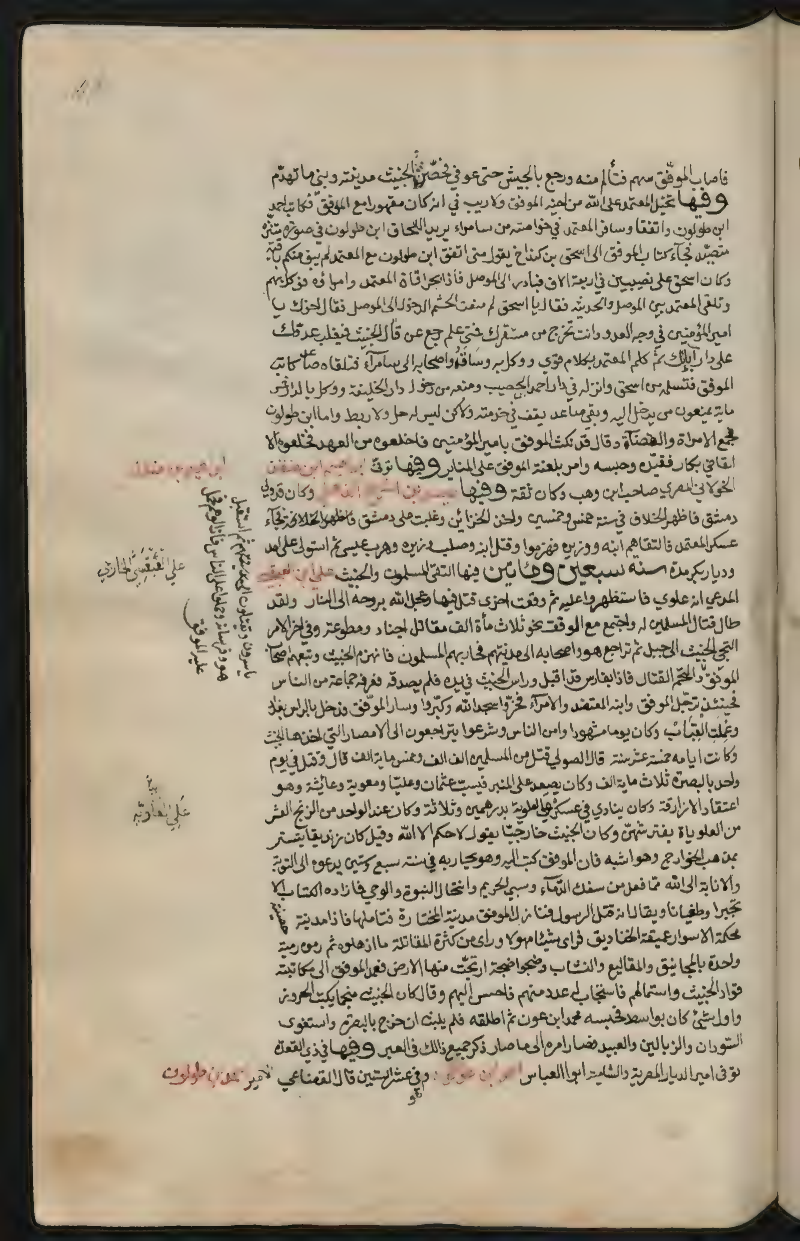 فاصاب الموفق سهم فتألم منه ورجع بالجيش حتى عوفي فحصّن الخبيث مدينته وبنى ما تهدّم
وفيها تخيل المعتمد على الله من اخيه الموفق ولا ريب في انه كان مقهورا مع الموفق فكاتب احمد
ابن طولون واتفقا وسافر المعتمد في خواصه من سامراء يريد اللحاق ابن طولون في صورة متنزّه
متصيّد فجآء كتاب الموفق الى اسحق بن كنداخ يقول متى اتفق ابن طولون مع المعتمد لم يبق منكم باقية
وكان اسحق على نصيبين في اربعة الاف فبادر الى الموصل فاذا بحراقة المعتمد وامراؤه فوكل بهم
وتلقى المعتمد بين الموصل والحديثة فقال يا اسحق لم منعت الحشم الدخول الى الموصل فقال اخوك يا
امير المؤمنين في وجه العدو وانت تخرج من مستقرك فمتى علم رجع عن قتال الخبيث فيغلب عدوك
على دار آبائك ثم كلم المعتمد بكلام قوي ووكل به وساقه واصحابه الى سامرآء فتلقاه صاعد كاتب
الموفق فتسلمه من اسحق وانزله في دار احمد الخصيب ومنعه من دخول دار الخليفة ووكل بالدار خمس
ماية يمنعون من يدخل اليه وبقي صاعد يقف في خدمته ولاكن ليس له حل ولا ربط واما ابن طولون
فجمع الامراة والقضاة وقال قد نكث الموفق بامير المؤمنين فاخلعوه من العهد فخلعوه الا
القاضي بكار فقيّده وحبسه وامر بلعنة الموفق على المنابر وفيها توفى ابراهيم ابن منقذ
الخولاني المصري صاحب ابن وهب وكان ثقة وفيها عيسى بن الشيخ وكان قد ولي
دمشق فاظهر الخلاف في سنة خمس وخمسين واخذ الخزاين وغلب على دمشق فاظهر الخلاف فجآء
عسكر المعتمد فالتقاهم ابنه ووزيره فهزموا وقتل ابنه وصلب وزيره وهرب عيسى ثم استولى على آمد
وديار بكر مدة سنه سبعين ومائتين فيها التقى المسلمون والخبيث علي ابن
المدعي انه علوي فاستظهروا عليه ثم وقعت اخرى قتل فيها وعجل الله بروحه الى النار ولقد
طال قتال المسلمين له واجتمع مع الموفق نحو ثلاث مأة الف مقاتل اجناد ومطوعة وفي اخر الامر
التجى الخبيث الى جبل ثم تراجع هو واصحابه الى مدينتهم فحاربهم المسلمون فانهزم الخبيث وتبعهم اصحاب
الموفق والتحم القتال فاذا بفارس قد اقبل وراس الخبيث في يده فلم يصدقه فعرفه جماعة من الناس
فحينئذ ترجل الموفق وابنه المعتضد والامرآء فخرّوا سجدا لله وكبّروا وسار الموفق ودخل بالراس بغداد
وعملت القباب وكان يوما مشهودا وامن الناس وشرعوا يتراجعون الى الامصار التي اخذها الخبيث
وكانت ايامه خمسة عشر سنة قال الصولي قتل من المسلمين الف الف وخمس ماية الف قال وقتل في يوم
واحد بالبصرة ثلاث ماية الف وكان يصعد على المنبر فيسبّ عثمان وعليا ومعوية وعايشة وهو
اعتقاد الازارقة وكان ينادي في عسكره على العلوية بدرهمين وثلاثة وكان عند الواحد من الزنج العشر
من العلويات يفترشهنّ وكان الخبيث خارجيا يقول لا حكم الا لله وقيل كان زنديقا يتستر
بمذهب الخوارج وهو اشبه فان الموفق كتب اليه وهو يحاربه في سنة سبع وستين يدعوه الى التوبة
والانابة الى الله مما فعل من سفك الدماء وسبي الحريم وانتحال النبوة والوحي فما زاده الكتاب الا
تجبرا وطغيانا ويقال انه قتل الرسول فنازل الموفق مدينة المختارة فتاملها فاذا مدينة حصينة
محكمة الاسوار عميقة الخناديق فراى شيئا مهولا وراى من كثرة المقاتلة ما اذهله ثم رموه رمية
واحدة بالمجانيق والمقاليع والنشاب وضجوا ضجة ارتجّت منها الارض فعمد الموفق الى مكاتبة
قواد الخبيث واستمالهم فاستجاب له عدد منهم فاحسن اليهم وقال كان الخبيث منجما يكتب الحروز
واول شيئ كان بواسط فحبسه محمد ابن عون ثم اطلقه فلم يلبث ان خرج بالبصرة واستغوى
السودان والزبالين والعبيد فصار امره الى ما صار ذكر جميع ذالك في العبر وفيها في ذي القعدة
توفى امير الديار المصرية والشامية ابو العباس احمد ابن طولون وهو في عشر الستين قال القضاعي
ابراهيم بن منقذ
علي الموفق
الامير احمد بن طولون